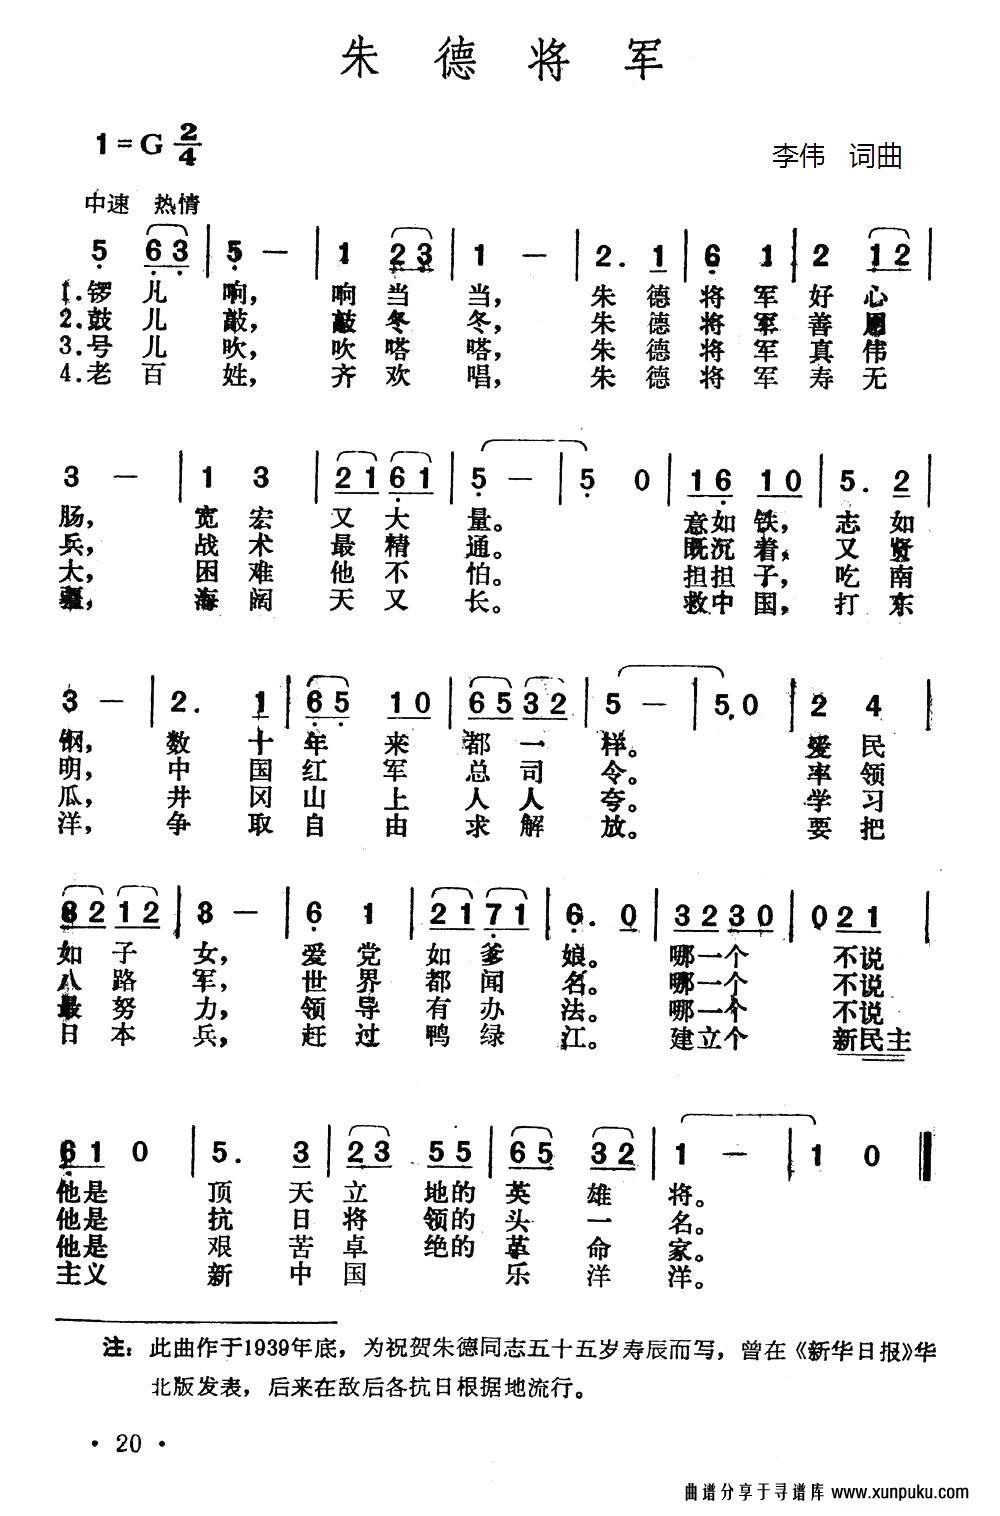 朱德将军
1=G 2/4
李伟 词曲
中速 热情
5 6 3 | 5 — | 1 2 3 | 1 — | 2. 1 | 6 1 | 2 1 2 |
1.锣儿响，响当当，朱德将军好心
2.鼓儿敲，敲冬冬，朱德将军善用
3.号儿吹，吹嗒嗒，朱德将军真伟
4.老百姓，齐欢唱，朱德将军寿无
3 — | 1 3 | 2 1 6 1 | 5 — | 5 0 | 1 6 1 0 | 5. 2 |
肠，宽宏又大量。意如铁，志如
兵，战术最精通。既沉着，又贤
大，困难他不怕。担担子，吃南
疆，海阔天又长。救中国，打东
3 — | 2. 1 | 6 5 1 0 | 6 5 3 2 | 5 — | 5. 0 | 2 4 |
钢，数十年来都一样。爱民
明，中国红军总司令。率领
瓜，井冈山上人人夸。学习
洋，争取自由求解放。要把
3 2 1 2 | 3 — | 6 1 | 2 1 7 1 | 6. 0 | 3 2 3 0 | 0 2 1 |
如子女，爱党如爹娘。哪一个不说
八路军，世界都闻名。哪一个不说
最努力，领导有办法。哪一个不说
日本兵，赶过鸭绿江。建立个新民主
6 1 0 | 5. 3 | 2 3 5 5 | 6 5 3 2 | 1 — | 1 0 ‖
他是顶天立地的英雄将。
他是抗日将领的头一名。
他是艰苦卓绝的革命家。
主义新中国乐洋洋。
注：此曲作于1939年底，为祝贺朱德同志五十五岁寿辰而写，曾在《新华日报》华
北版发表，后来在敌后各抗日根据地流行。
· 20 ·
曲谱分享于寻谱库 www.xunpuku.com